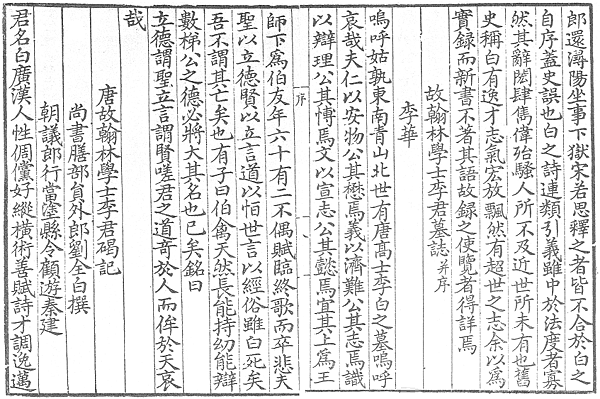 郎還潯陽坐事下獄宋若思釋之者皆不合於白之
自序蓋史誤也白之詩連類引義雖中於法度者寡
然其辭閎肆雋偉殆騷人所不及近世所未有也舊
史稱白有逸才志氣宏放飄然有超世之志余以為
實録而新書不著其語故録之使覽者得詳焉
故翰林學士李君墓誌并序
李華
嗚呼姑孰東南青山北址有唐高士李白之墓嗚呼
哀哉夫仁以安物公其懋焉義以濟難公其志焉識
以辯理公其博焉文以宣志公其懿焉宜其上為王
序
師下為伯友年六十有二不偶賦臨終歌而卒悲夫
聖以立德賢以立言道以恒世言以經俗雖白死矣
吾不謂其亡矣也有子曰伯禽天然長能持幼能辯
數梯公之德必將大其名也已矣銘曰
立德謂聖立言謂賢嗟君之道奇於人而侔於天哀
哉
唐故翰林學士李君碣記
尚書膳部員外郎劉全白撰
朝議郎行當塗縣令顧遊秦建
君名白廣漢人性倜儻好縱橫術善賦詩才調逸邁